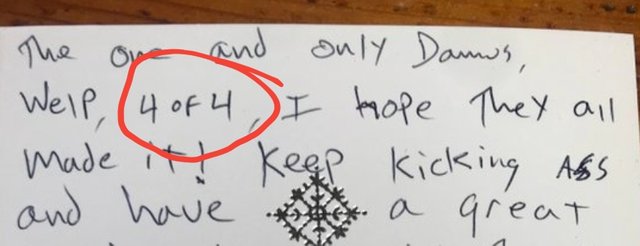 The one and only Dannus,
Welp, 4 of 4, I hope They all
made it! Keep kicking Ass
and have a great